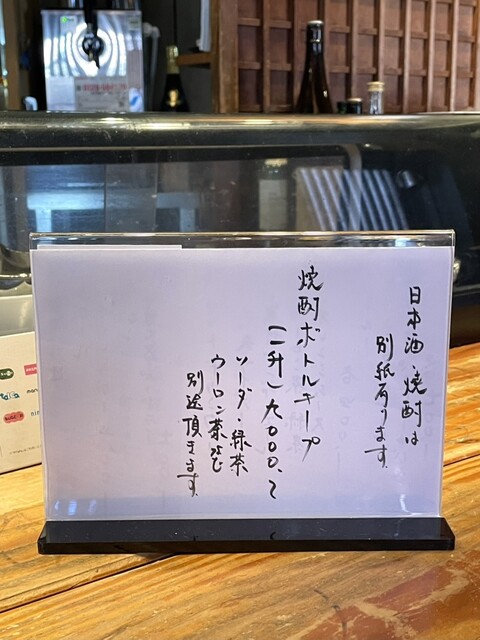 日本酒・焼酎は
別紙有ります。
焼酎ボトルキープ
(一升)九〇〇〇、〜
ソーダ・緑茶
ウーロン茶など
別途頂きます。